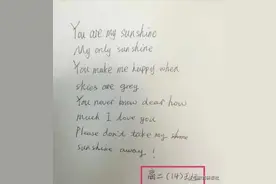 You are my sunshine
My only sunshine
You make me happy when
skies are grey
You never know dear how
much I love you
Please don't take my shine
sunshine away !
高二(14)